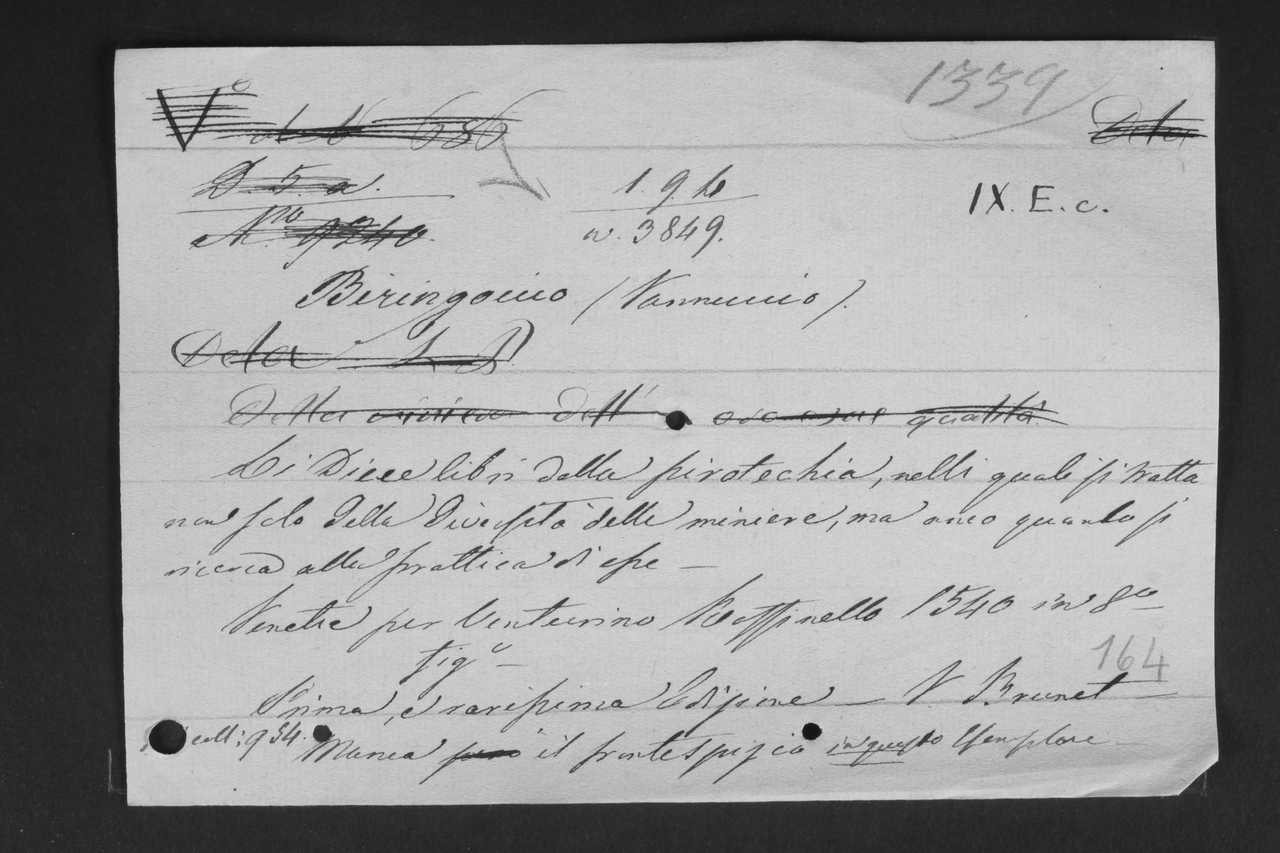 1339
V°
686
Dela
D. 5 a.
1. 9. b
IX. E. c.
N.ro 9240.
n. 3849.
Biringoccio (Vannuccio).
Dela
Della dell' qualità
Li Diece libri della pirotechia, nelli quali si tratta
non solo della diversità delle miniere, ma anco quanto si
ricerca alla prattica di esse —
Venetia per Venturino Roffinello 1540 in 8vo
fig.°
164
Prima, e rarissima Edizione — V. Brunet —
coll: 934.
Manca però il frontespizio in questo Esemplare —